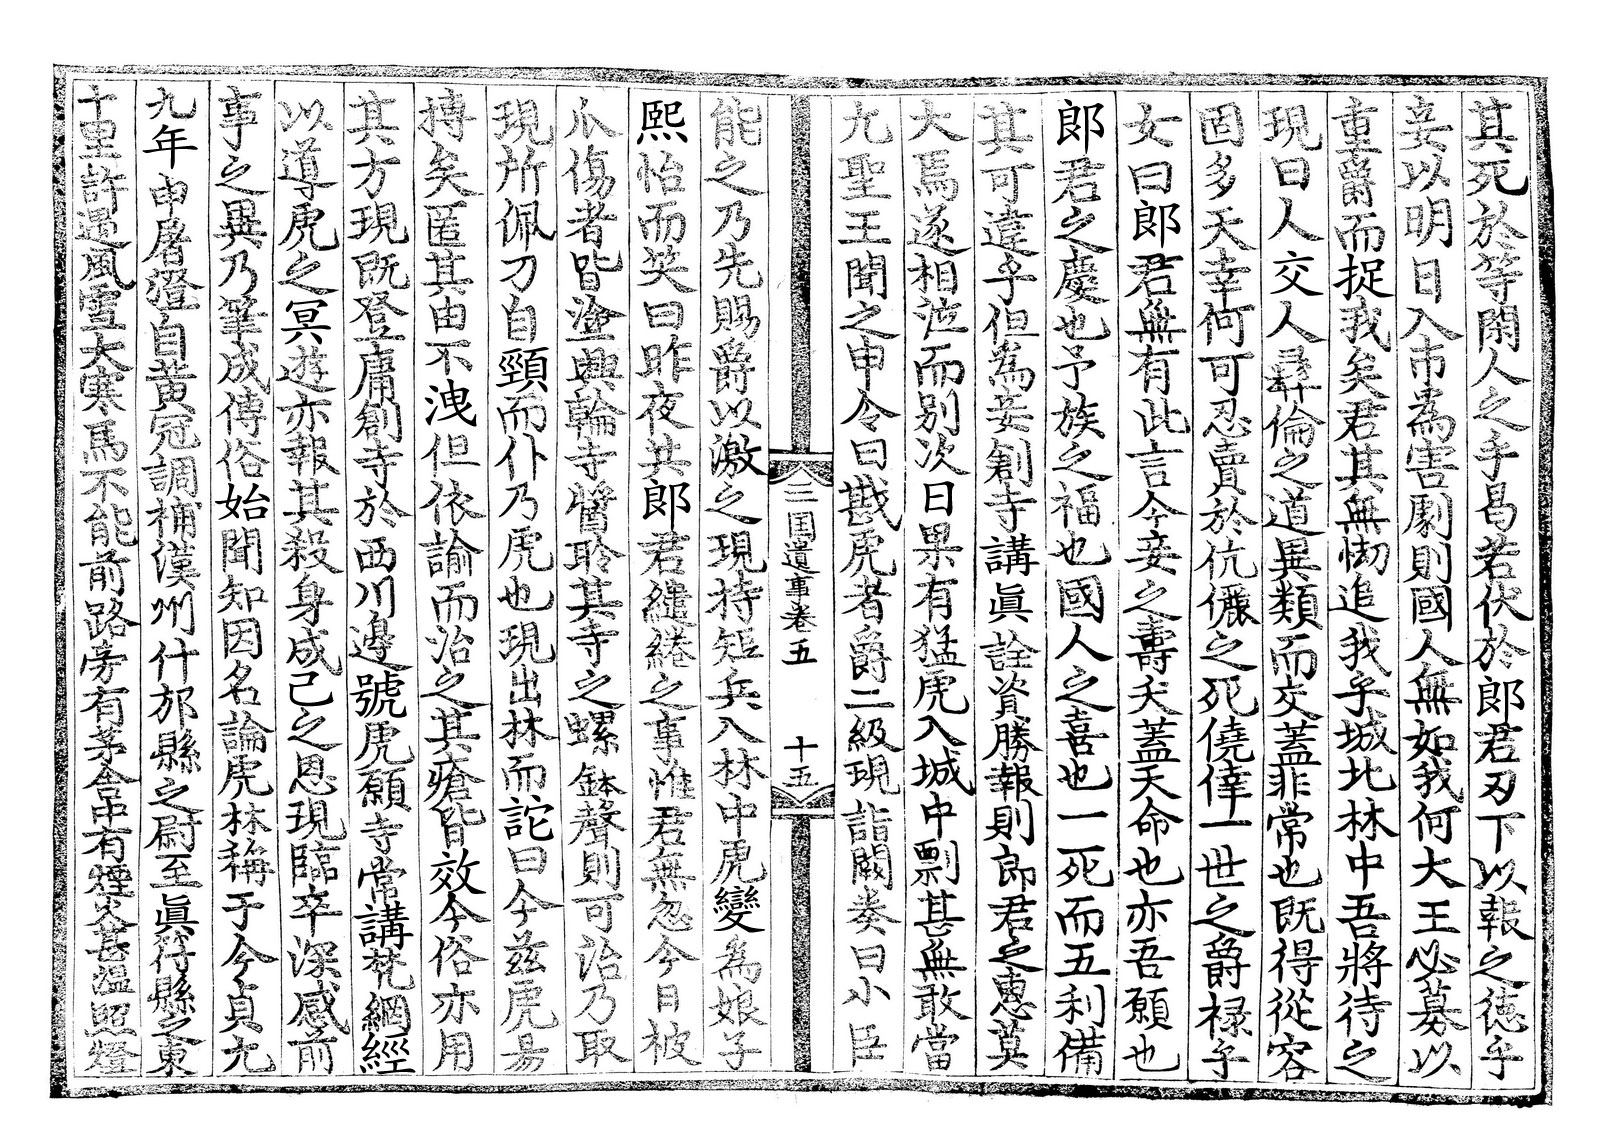 其死於等閑人之手曷若伏於郎君刃下以報之德乎
妾以明日入市為害劇則國人無如我何大王必募以
重爵而捉我矣君其無㤼追我乎城北林中吾將待之
現曰人交人彛倫之道異類而交蓋非常也既得從容
固多天幸何可忍賣於伉儷之死僥倖一世之爵禄乎
女曰郎君無有此言今妾之壽夭蓋天命也亦吾願也
郎君之慶也予族之福也國人之喜也一死而五利備
其可違乎但為妾創寺講眞詮資勝報則郎君之惠莫
大焉遂相泣而別次日果有猛虎入城中剽甚無敢當
元聖王聞之申令曰戡虎者爵二級現詣闕奏曰小臣
三国遺事卷五
十五
能之乃先賜爵以激之現持短兵入林中虎變為娘子
熙怡而笑曰昨夜共郎君繾綣之事惟君無忽今日被
爪傷者皆塗興輪寺醬聆其寺之螺鉢聲則可治乃取
現所佩刀自頸而仆乃虎也現出林而詫曰今茲虎易
搏矣匿其由不洩但依諭而治之其瘡皆效今俗亦用
其方現既登庸創寺於西川邊號虎願寺常講梵網經
以導虎之冥遊亦報其殺身成己之恩現臨卒深感前
事之異乃筆成傳俗始聞知因名論虎林稱于今貞元
九年申屠澄自黃冠調補漢州什邡縣之尉至眞符縣之東
十里許遇風雪大寒馬不能前路旁有茅舍中有煙火甚溫照燈